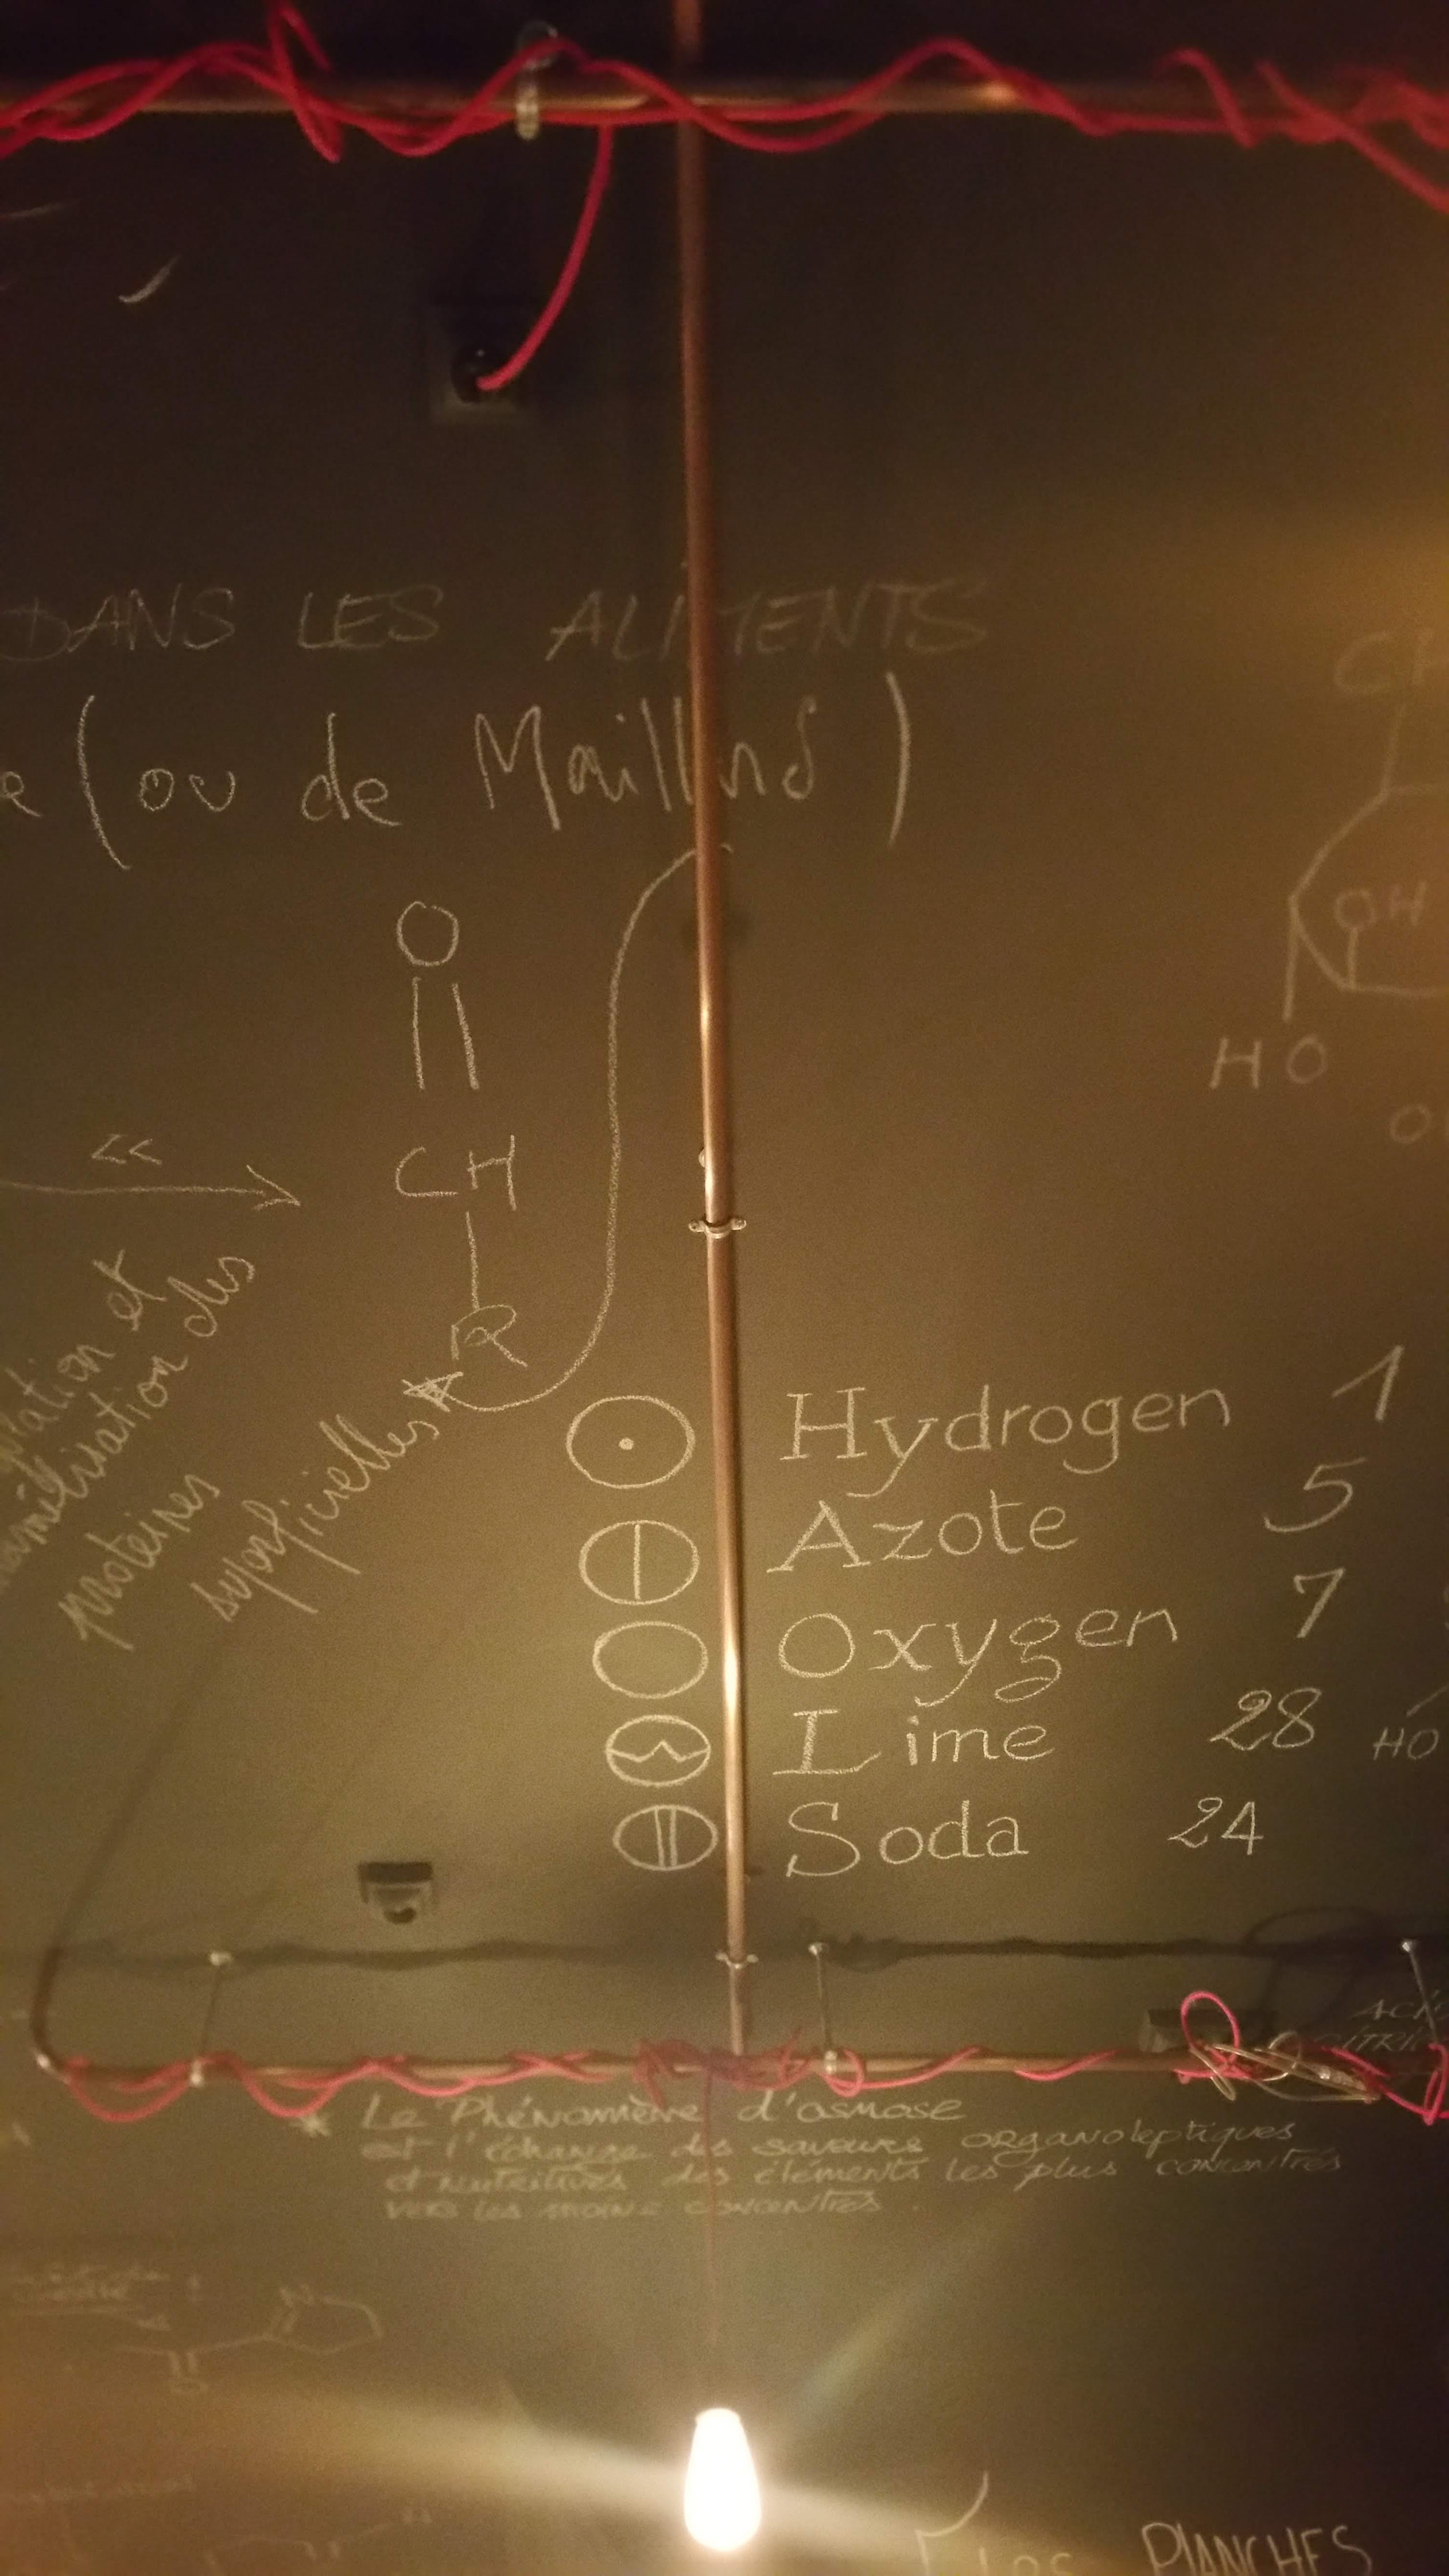 DANS LES ALIMENTS
(ou de Maillard)
O
CH
R
<<
et
des
protéines
superficielles
OH
HO
Hydrogen 1
Azote 5
Oxygen 7
Lime 28
HO
Soda 24
* Le Phénomène d'osmose
est l'échange des saveurs organoleptiques
et nutritives des éléments les plus concentrés
vers les moins concentrés.
O
Les PLANCHES